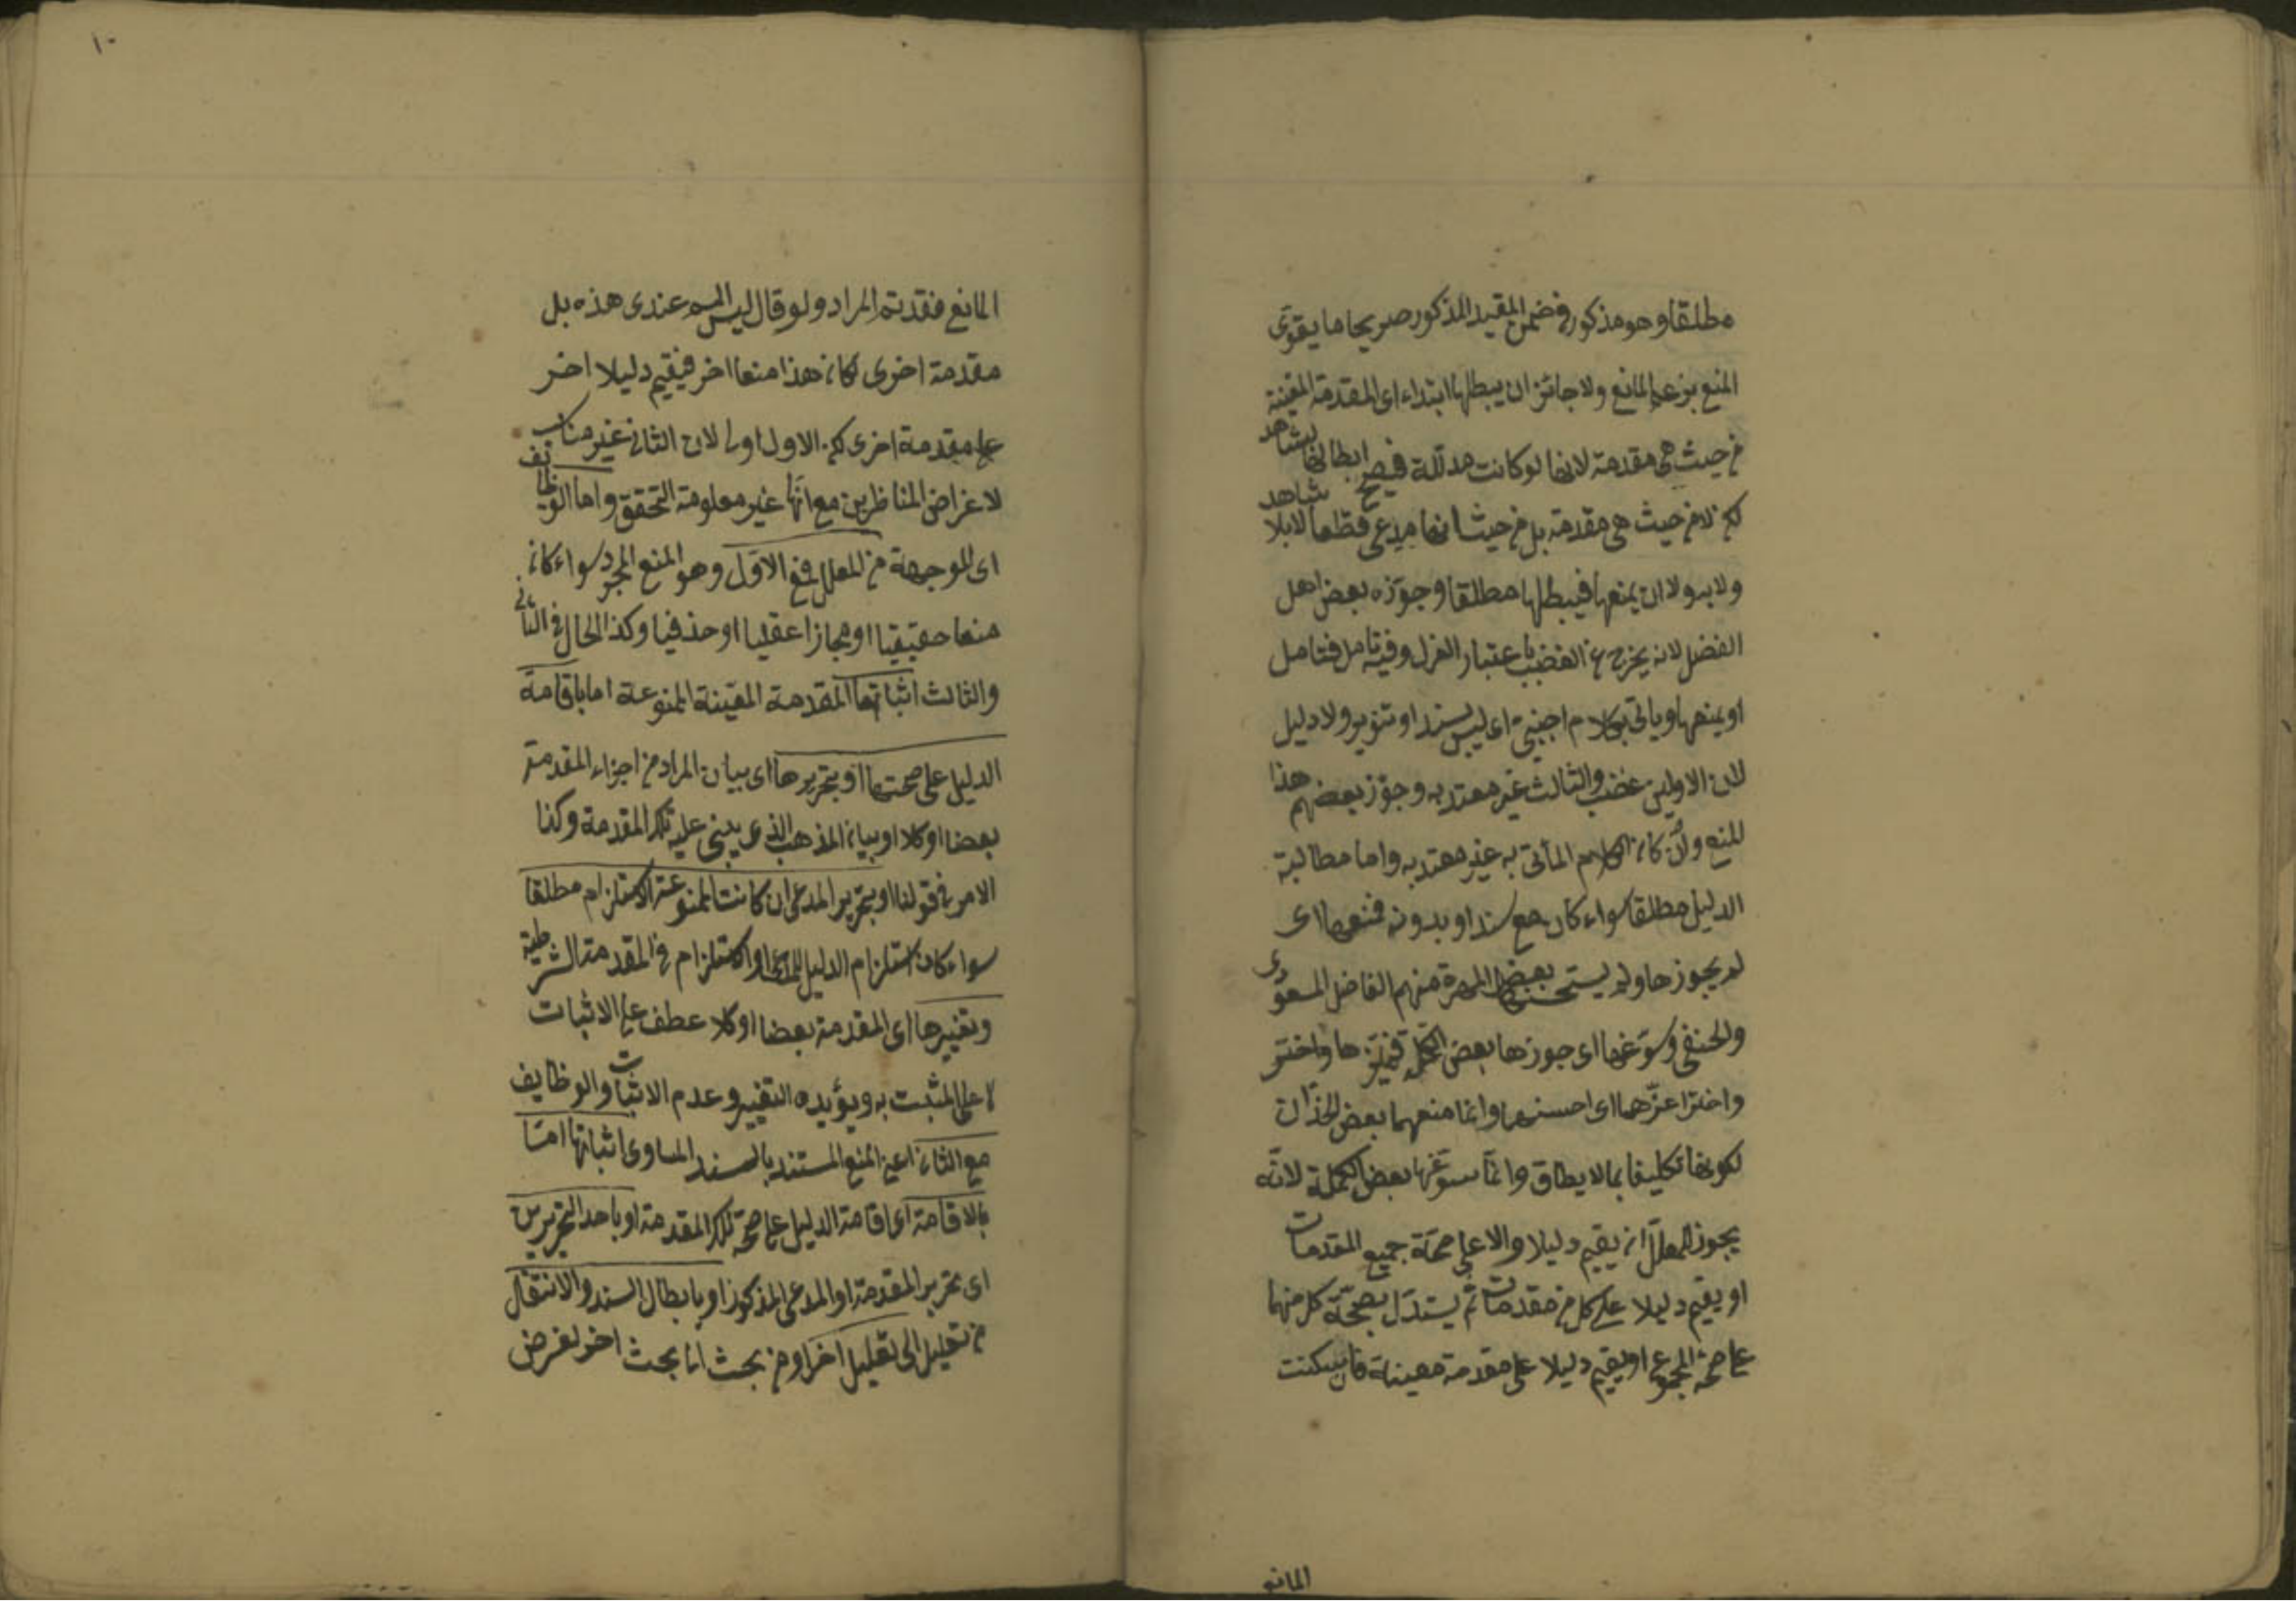 مطلقا وهو مذكور فى ضمن المقيد المذكور صريحا ما يقوى
المنع بزعم المانع ولا جائز ان يبطلها ابتداء اى المقدمة المعينة
من حيث هى مقدمة لانها لو كانت مدللة فيصح ابطالها بشاهد
لكن لا من حيث هى مقدمة بل من حيث انها مدعى فقطعا لا بلا شاهد
ولا يسوٰلا ان يمنعها فيبطلها مطلقا وجوزه بعض اهل
الفضل لانه يخرج عن الغصب باعتبار العزل وفيه تامل فتامل
او يمنعها وياتى بكلام اجنبى اى ليس بسند او تنوير ولا دليل
لان الاولين غضب والثالث غير معتد به وجوز بعضهم هذا
المنع وان كان الكلام المأتى به غير معتد به واما مطالبة
الدليل مطلقا سواء كان مع سند او بدونه فمنعها اى
لم يجوزها ولم يستحسنها بعض المهرة منهم الفاضل المسعودى
والحنفى وسوغها اى جوزها بعض الكمل واختر
واخترا عزهما اى احسنهما وانما منعهما بعض الحذان
لكونها تكليفا بما لا يطاق وانما سوغها بعض الكملة لانه
يجوز للمعلل ان يقيم دليلا والا على صحة جميع المقدمات
او يقيم دليلا على كل من مقدمات ثم يستدل بصحة كل منها
على صحة المجموع او يقيم دليلا على مقدمة معينة فان سكنت
المانع
١٠
المانع فقد تم المراد ولو قال ليس المم عندى هذه بل
مقدمة اخرى لكان هذا منعا اخر فيقيم دليلا اخر
على مقدمة اخرى لكن الاول اولى لان الثانى غير مناسب
لاغراض المناظرين مع انها غير معلومة التحقق واما الوظايف
اى الموجهة من المعلل فمع الاول وهو المنع المجرد سواء كان
منعا حقيقيا او مجازا عقليا او حذفيا وكذا الحال فى الثانى
والثالث اثباتها المقدمة المعينة الممنوعة اما باقامة
الدليل على صحتها او بتحريرها اى بيان المراد من اجزاء المقدمة
بعضا او كلا او بيان المذهب الذى يبنى عليه تلك المقدمة وكذا
الامر فى قولنا او بتحرير المدعى ان كانت الممنوعة الاستلزام مطلقا
سواء كان استلزام الدليل للمدعى او الاستلزام فى المقدمة الشرطية
وتغييرها اى المقدمة بعضا او كلا عطف على الاثبات
لا على المثبت به ويؤيده التغيير وعدم الاثبات والوظايف
مع الثانى اعنى المنع المستند بالسند المساوى اثباتها اما
بالاقامة اى اقامة الدليل على صحة تلك المقدمة او باحد التحريرين
اى تحرير المقدمة او المدعى المذكور او بابطال السند والانتقال
من تعليل الى تعليل اخر او من بحث الى بحث اخر لغرض